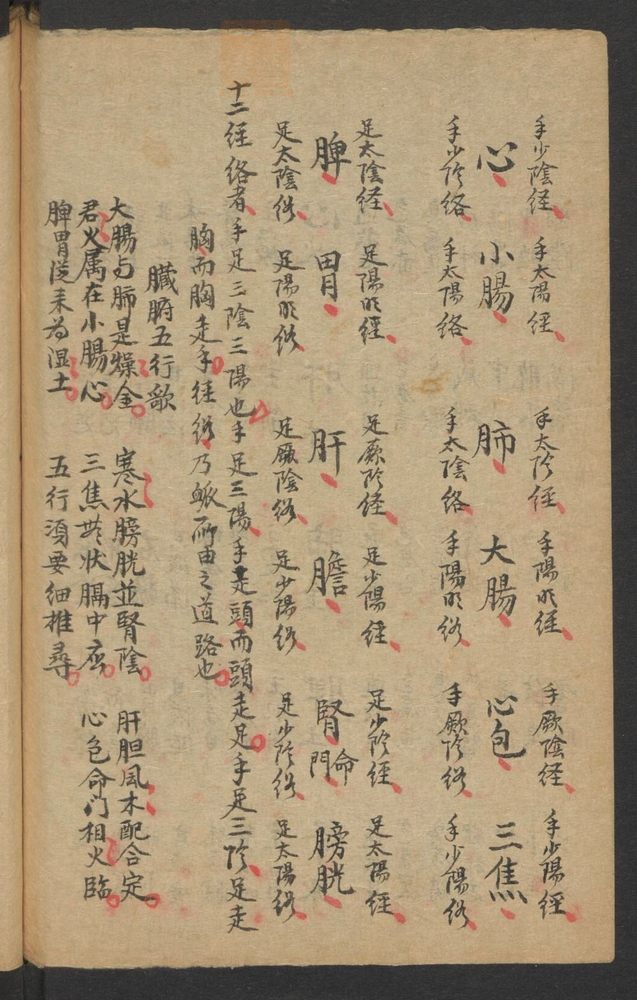 手少陰経 手太陽経 手太阴経 手陽明経 手厥陰経 手少陽経
心 小腸 肺 大腸 心包 三焦
手少阴絡 手太陽絡 手太陰絡 手陽明絡 手厥阴絡 手少陽絡
足太陰経 足陽明經 足厥阴経 足少陽経 足少阴經 足太陽経
脾 胃 肝 膽 腎 命門 膀胱
足太陰絡 足陽明絡 足厥陰絡 足少陽絡 足少阴絡 足太陽絡
十二経絡者手足三陰三陽也手足三陽手走頭而頭走足手足三阴足走
胸而胸走手経絡乃脈所由之道路也
臓腑五行歌
大腸与肺是燥金 寒水膀胱並腎陰 肝胆風木配合定
君火属在小腸心 三焦 状膈中 心包命门相火臨
脾胃從来為湿土 五行須要細推尋